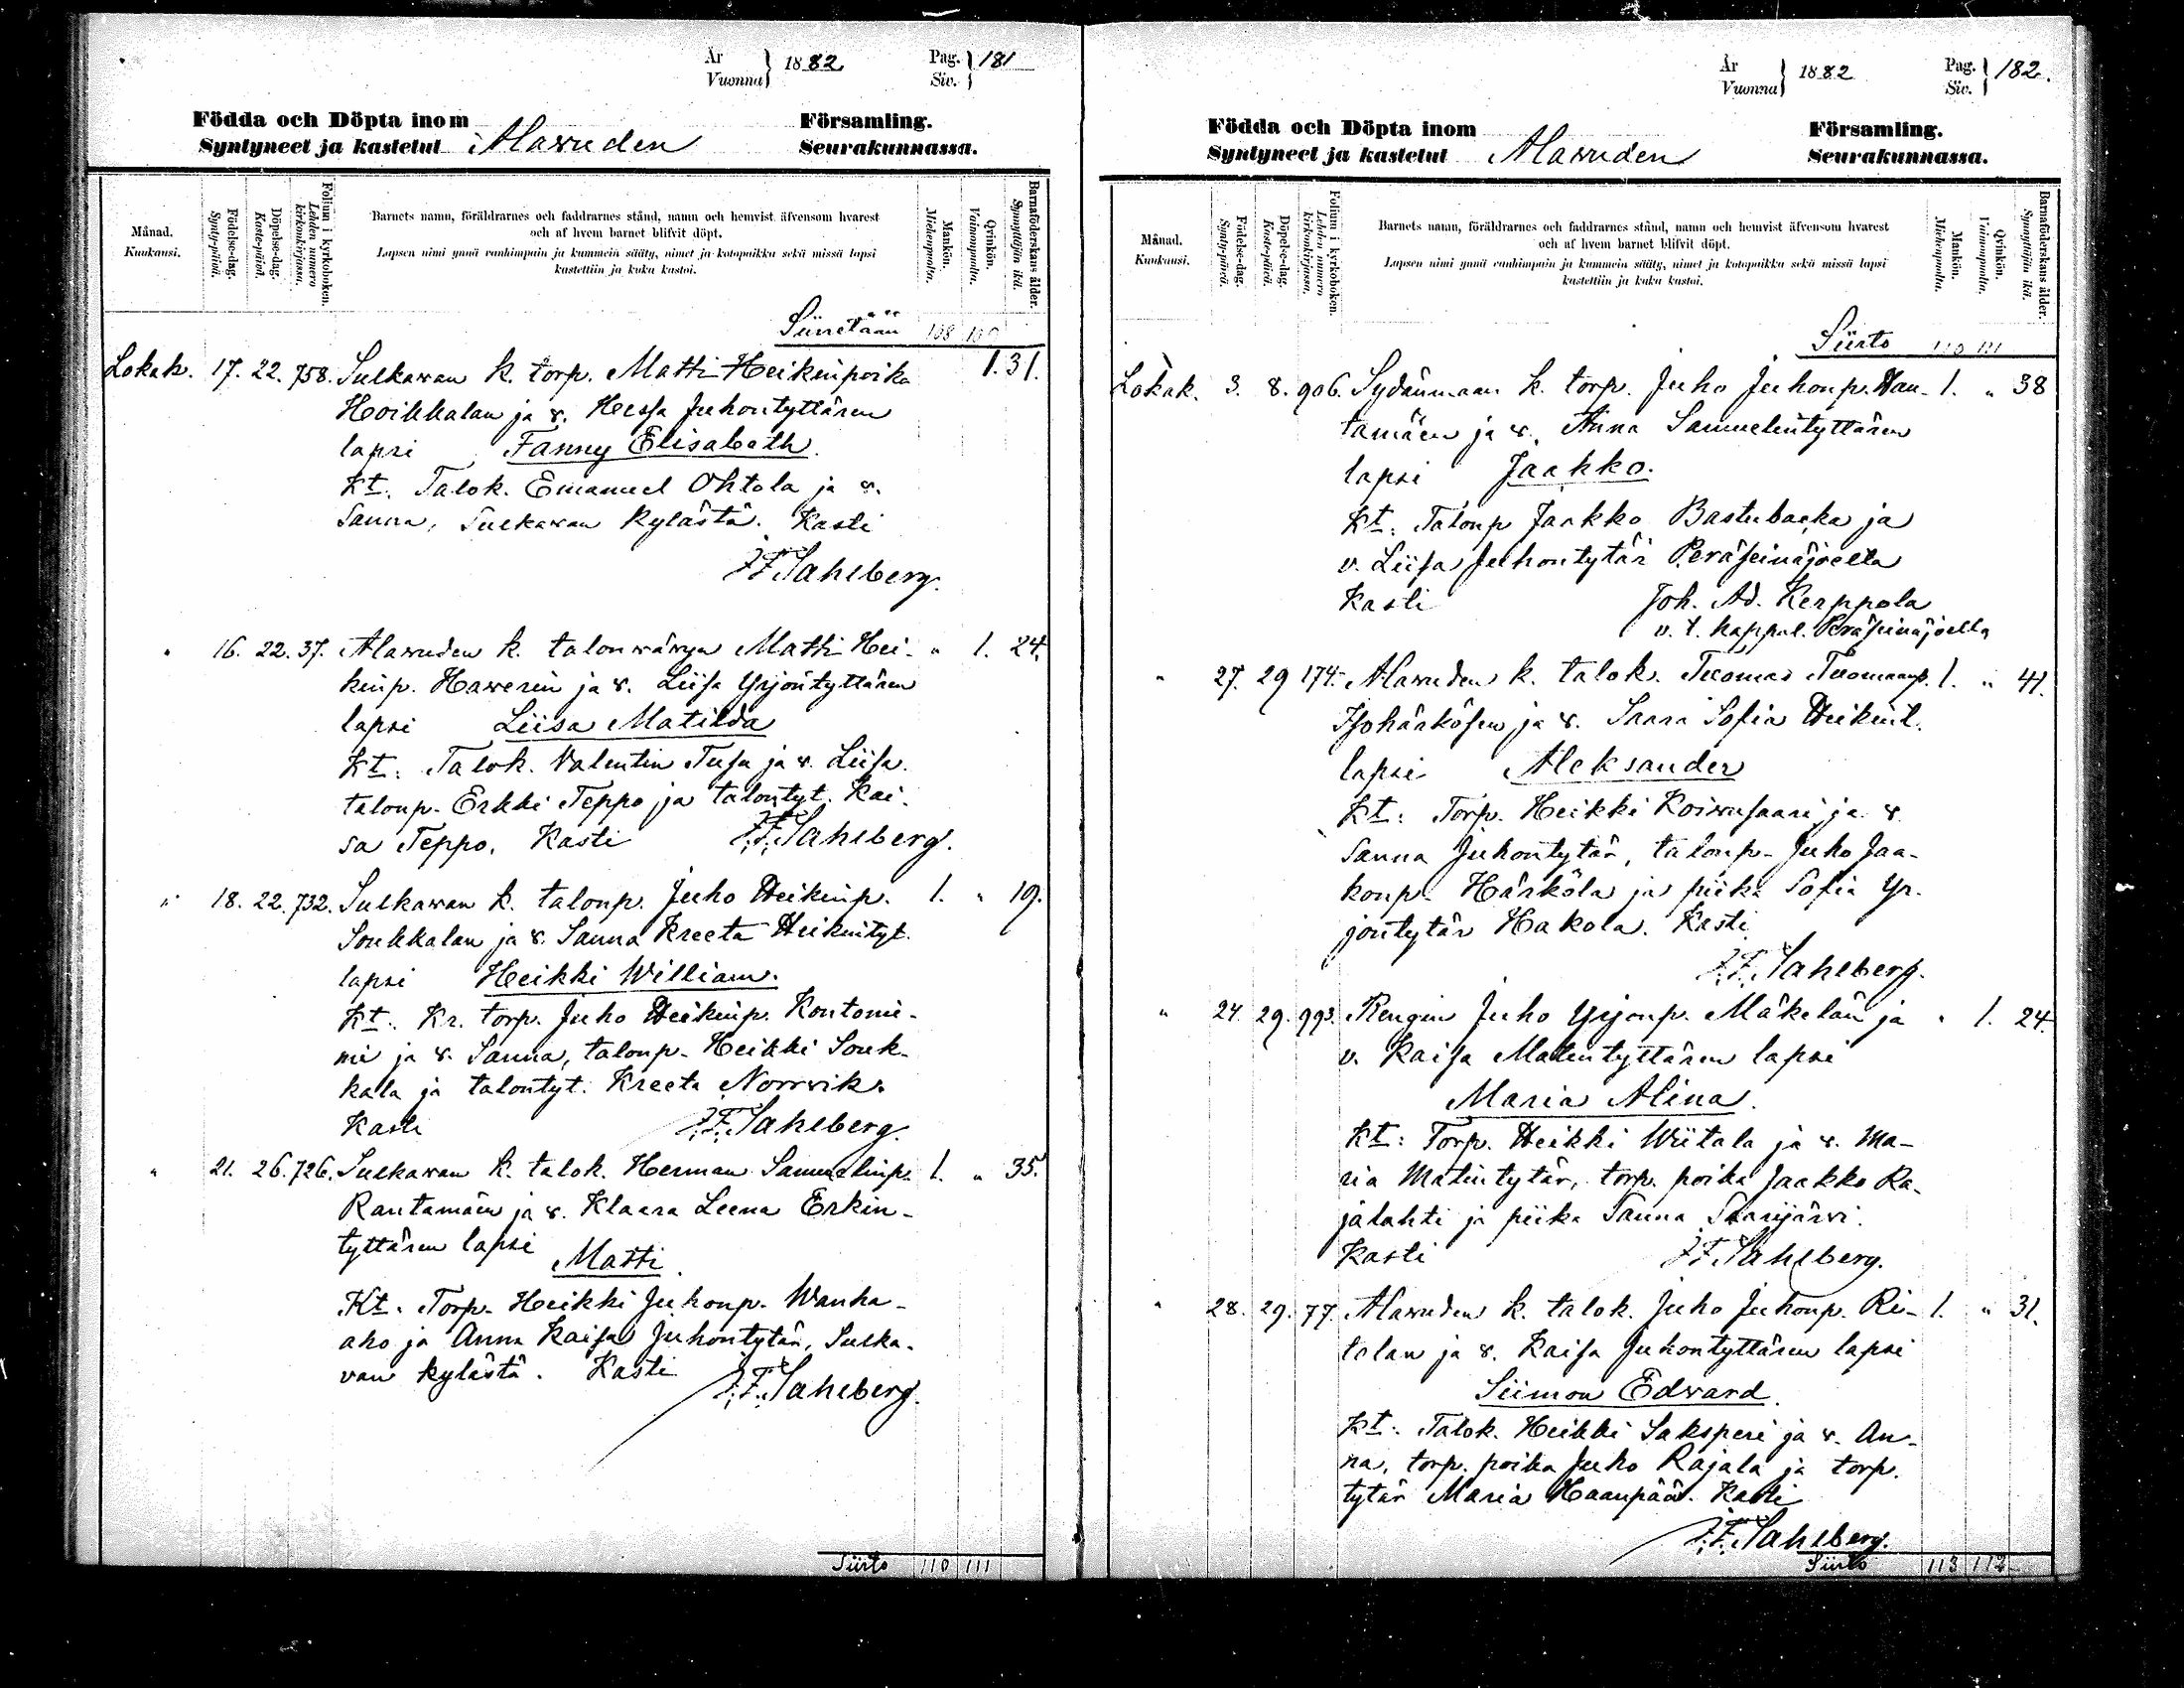 År
Vuonna } 1882 Pag.
Siv. } 181
Födda och Döpta inom Församling.
Syntyneet ja kastetut Alavuden Seurakunnassa.
Månad.
Kuukausi.
Födelse-dag.
Synty-päivä.
Döpelse-dag.
Kaste-päivä.
Folium i kyrkoboken.
Lehden numero
kirkonkirjassa.
Barnets namn, föräldrarnes och faddrarnes stånd, namn och hemvist äfvensom hvarest
och af hvem barnet blifvit döpt.
Lapsen nimi ynnä vanhimpain ja kummein sääty, nimet ja kotopaikka sekä missä lapsi
kastettiin ja kuka kastoi.
Mankön.
Miehenpuolta.
Qvinkön.
Vaimonpuolta.
Barnaföderskans ålder.
Synnyttäjän ikä.
Siirretään 108 110
Lokak. 17. 22. 758. Sulkawan k. torp. Matti Heikinpoika 1. 31.
Hoikkalan ja v. Hessa Juhontyttären
lapsi Fanny Elisabeth.
Kt. Talok. Emanuel Ohtola ja v.
Sanna, Sulkawan kylästä. Kasti
F. F. Sahlberg.
" 16. 22. 37. Alavuden k. talonvävyn Matti Hei- " 1. 24.
kinp. Hawerin ja v. Liisa Yrjöntyttären
lapsi Liisa Matilda
Kt. Talok. Valentin Tusa ja v. Liisa.
talonp. Erkki Teppo ja talontyt. Kai-
sa Teppo. Kasti F. F. Sahlberg.
" 18. 22. 732. Sulkawan k. talonp. Juho Heikinp. 1. " 19.
Soukkalan ja v. Sanna Kreeta Heikintyt.
lapsi Heikki William.
Kt. Kr. torp. Juho Heikinp. Kontonie-
mi ja v. Sanna, talonp. Heikki Souk-
kala ja talontyt. Kreeta Norrvik.
Kasti F. F. Sahlberg.
" 21. 26. 726. Sulkawan k. talok. Herman Samuelinp. 1. " 35.
Rantamäen ja v. Klaara Leena Erkin-
tyttären lapsi Matti.
Kt. Torp. Heikki Juhonp. Wanha-
aho ja Anna Kaisa Juhontytär, Sulka-
van kylästä. Kasti F. F. Sahlberg.
Siirto 110 111
År
Vuonna } 1882 Pag.
Siv. } 182.
Födda och Döpta inom Församling.
Syntyneet ja kastetut Alavuden Seurakunnassa.
Månad.
Kuukausi.
Födelse-dag.
Synty-päivä.
Döpelse-dag.
Kaste-päivä.
Folium i kyrkoboken.
Lehden numero
kirkonkirjassa.
Barnets namn, föräldrarnes och faddrarnes stånd, namn och hemvist äfvensom hvarest
och af hvem barnet blifvit döpt.
Lapsen nimi ynnä vanhimpain ja kummein sääty, nimet ja kotopaikka sekä missä lapsi
kastettiin ja kuka kastoi.
Mankön.
Miehenpuolta.
Qvinkön.
Vaimonpuolta.
Barnaföderskans ålder.
Synnyttäjän ikä.
Siirto 110 111
Lokak. 3. 8. 906. Sydänmaan k. torp. Juho Juhonp. Hau- 1. " 38
tamäen ja v. Anna Samuelintyttären
lapsi Jaakko.
Kt. Talonp Jaakko Bastubacka ja
v. Liisa Juhontytär Peräseinäjoelta
Kasti Joh. Ad. Kerppola
v. t. kappal. Peräseinäjoella
" 27. 29 174. Alavuden k. talok. Tuomas Tuomaanp. 1. " 41.
Isohärkösen ja v. Saara Sofia Heikint.
lapsi Aleksander
Kt: Torp. Heikki Koivusaari ja v
Sanna Juhontytär, talonp. Juho Jaa-
konp. Härkölä ja piika Sofia Yr-
jöntytär Hakola. Kasti
F. F. Sahlberg.
" 24. 29. 993. Rengin Juho Yrjönp. Mäkelän ja " 1. 24.
v. Kaisa Matintyttären lapsi
Maria Alina.
Kt: Torp. Heikki Wiitala ja v. Ma-
ria Matintytär, torp. poika Jaakko Ra-
jalahti ja piika Sanna Saarijärvi.
Kasti F. F. Sahlberg.
" 28. 29. 77. Alavuden k. talok. Juho Juhonp. Ri- 1. " 31.
talan ja v. Kaisa Juhontyttären lapsi
Siimon Edvard.
Kt. Talok. Heikki Saksperi ja v. An-
na, torp. poika Juho Rajala ja torp.
tytär Maria Haanpää. Kasti
F. F. Sahlberg.
Siirto 113 112